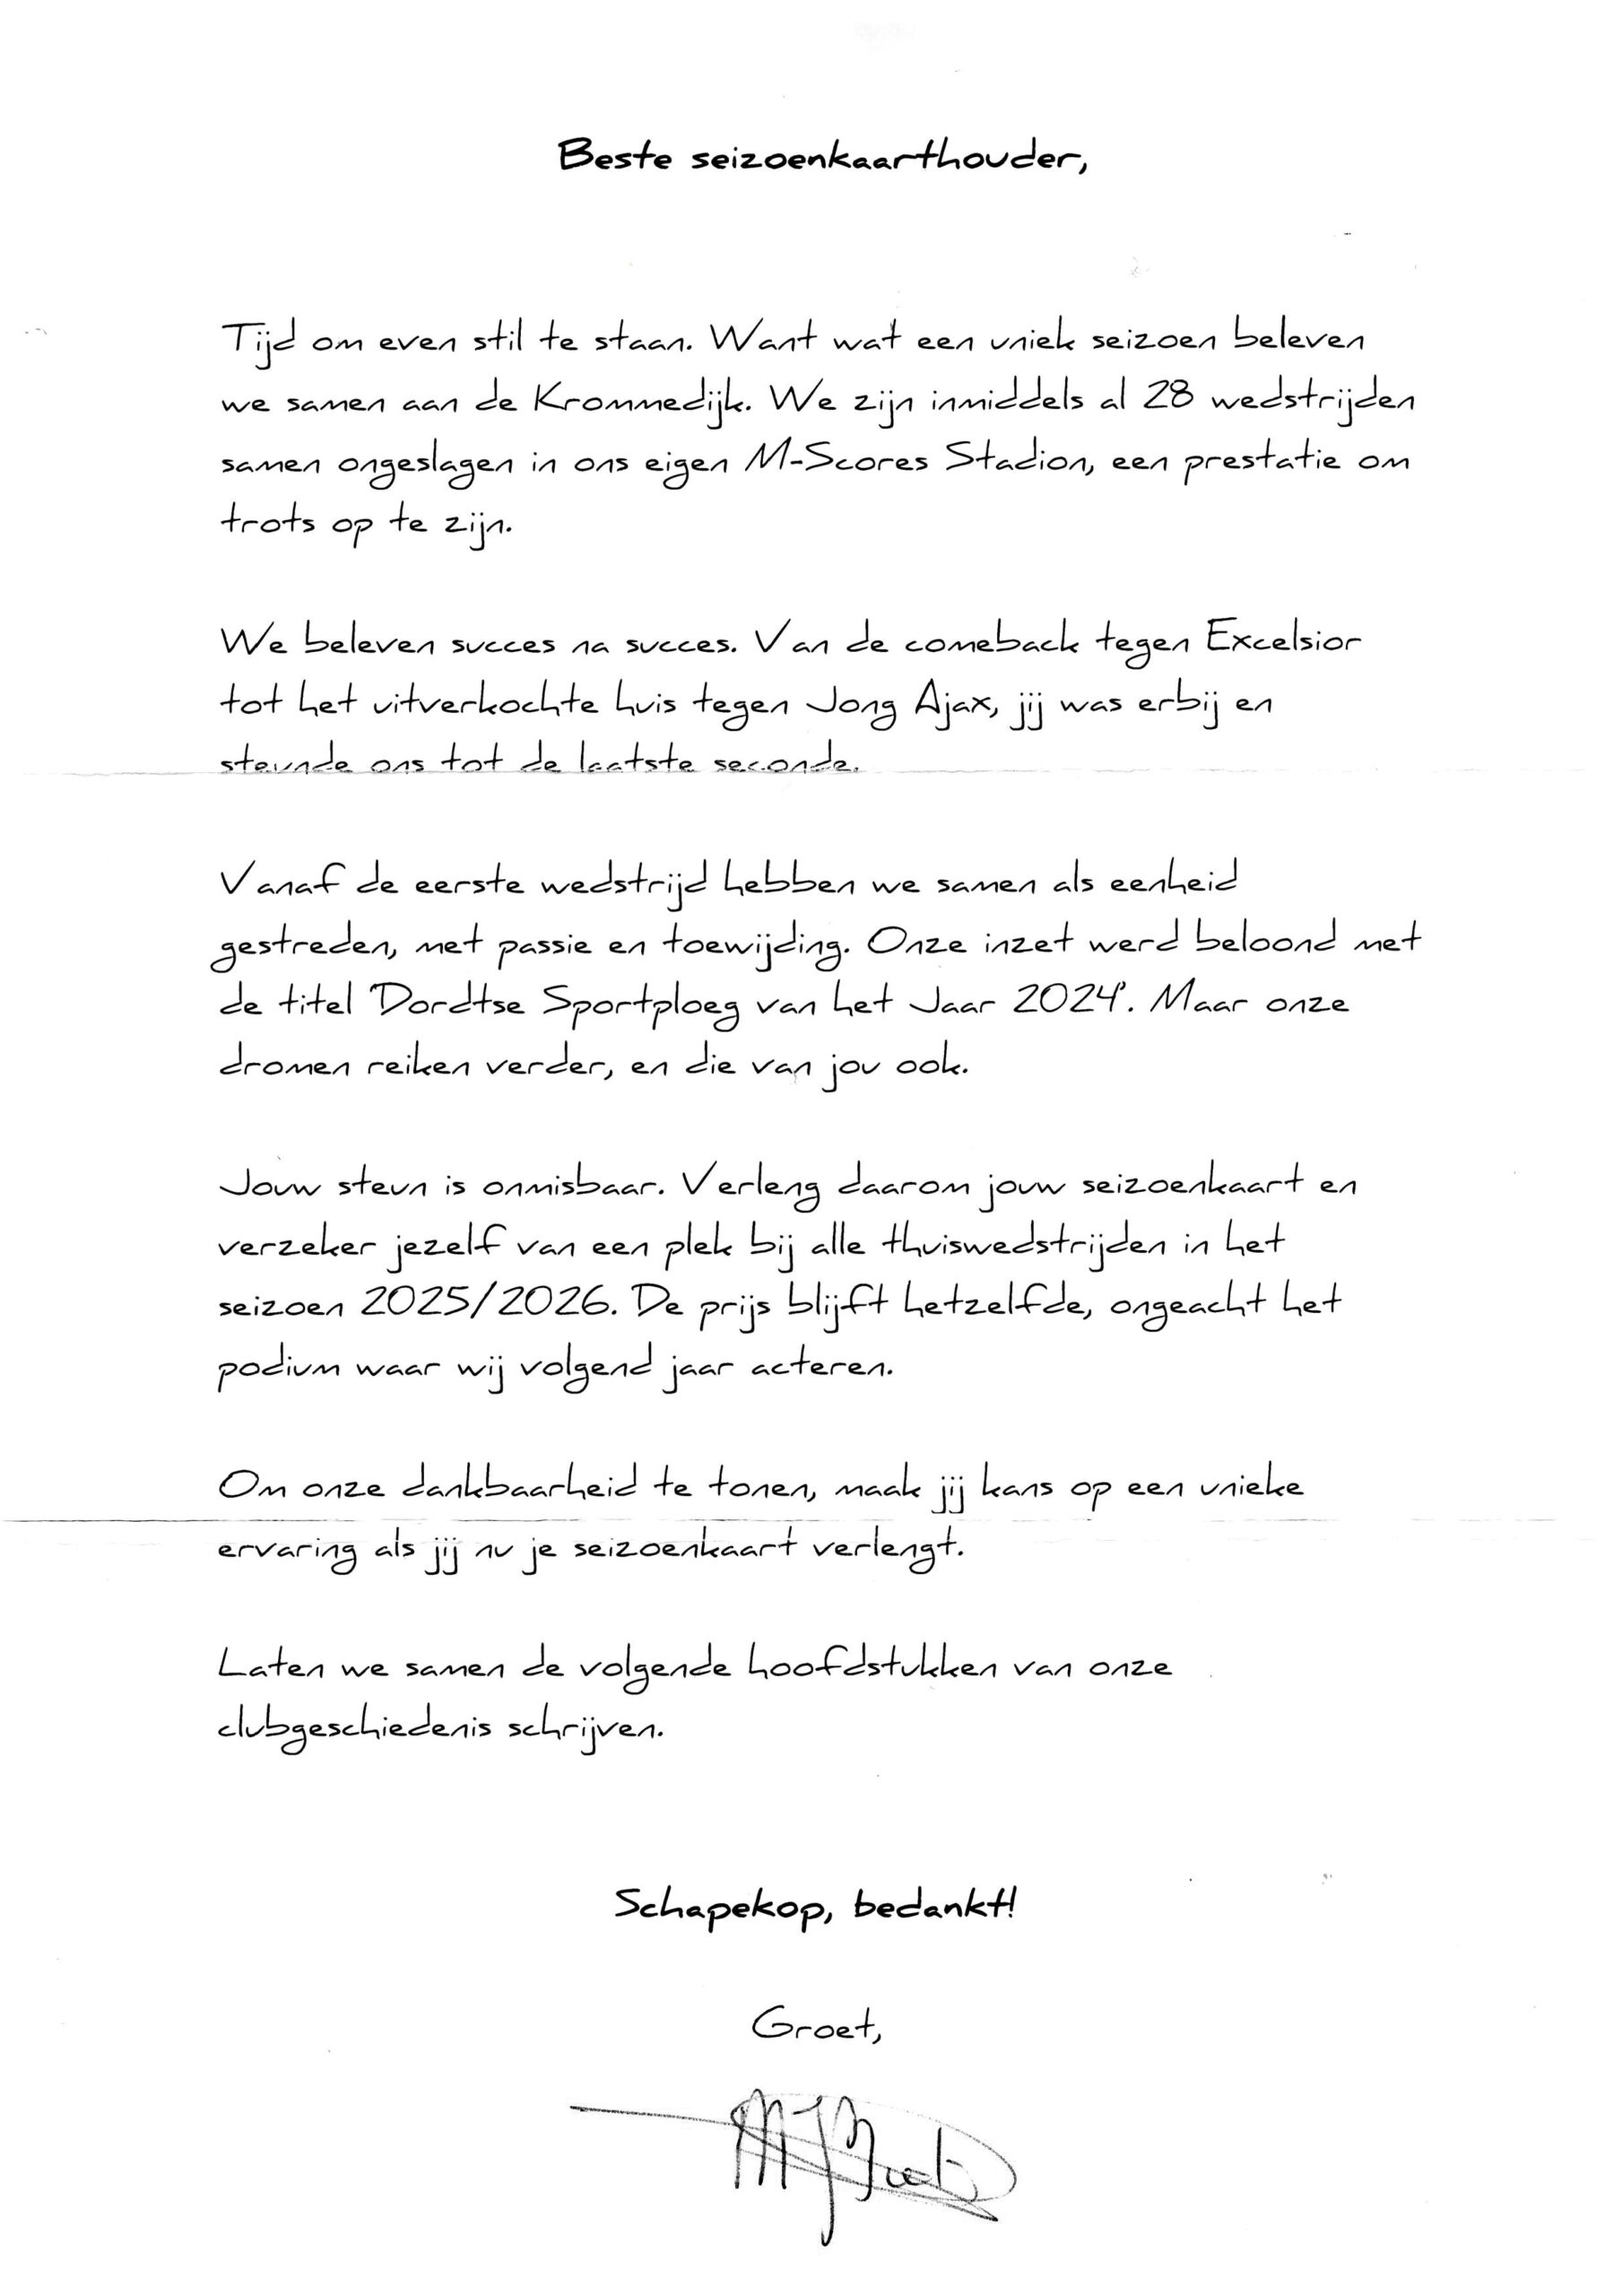 Beste seizoenkaarthouder,
Tijd om even stil te staan. Want wat een uniek seizoen beleven
we samen aan de Krommedijk. We zijn inmiddels al 28 wedstrijden
samen ongeslagen in ons eigen M-Scores Stadion, een prestatie om
trots op te zijn.
We beleven succes na succes. Van de comeback tegen Excelsior
tot het uitverkochte huis tegen Jong Ajax, jij was erbij en
steunde ons tot de laatste seconde.
Vanaf de eerste wedstrijd hebben we samen als eenheid
gestreden, met passie en toewijding. Onze inzet werd beloond met
de titel 'Dordtse Sportploeg van het Jaar 2024'. Maar onze
dromen reiken verder, en die van jou ook.
Jouw steun is onmisbaar. Verleng daarom jouw seizoenkaart en
verzeker jezelf van een plek bij alle thuiswedstrijden in het
seizoen 2025/2026. De prijs blijft hetzelfde, ongeacht het
podium waar wij volgend jaar acteren.
Om onze dankbaarheid te tonen, maak jij kans op een unieke
ervaring als jij nu je seizoenkaart verlengt.
Laten we samen de volgende hoofdstukken van onze
clubgeschiedenis schrijven.
Schapekop, bedankt!
Groet,